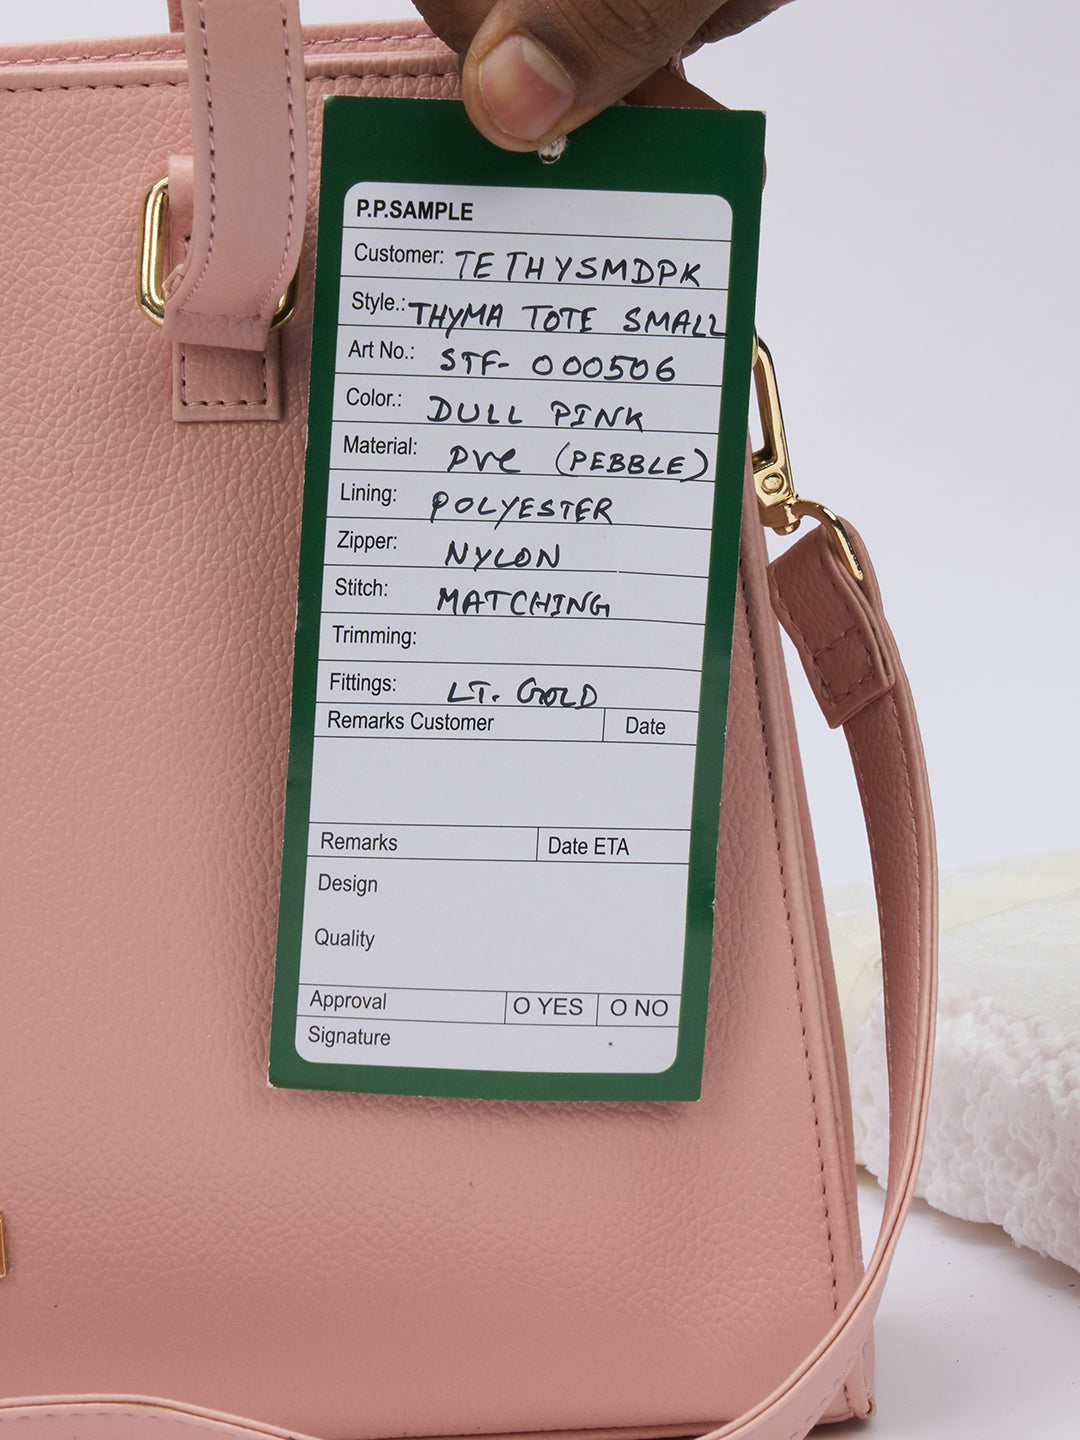 P.P.SAMPLE
Customer: TETHYSMDPK
Style.: THYMA TOTE SMALL
Art No.: STF- 000506
Color.: DULL PINK
Material: PVC (PEBBLE)
Lining: POLYESTER
Zipper: NYLON
Stitch: MATCHING
Trimming:
Fittings: LT. GOLD
Remarks Customer Date
Remarks Date ETA
Design
Quality
Approval O YES O NO
Signature